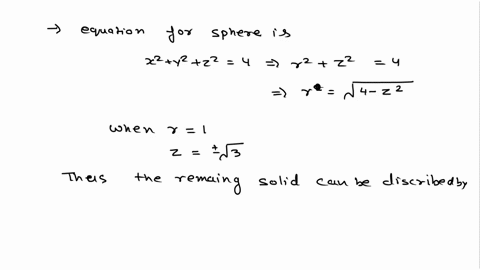 → equation for sphere is
x²+y²+z² = 4 ⇒ r²+z² = 4
⇒ r = √4-z²
when r = 1
z = ±√3
Thus the remaing solid can be discribed by